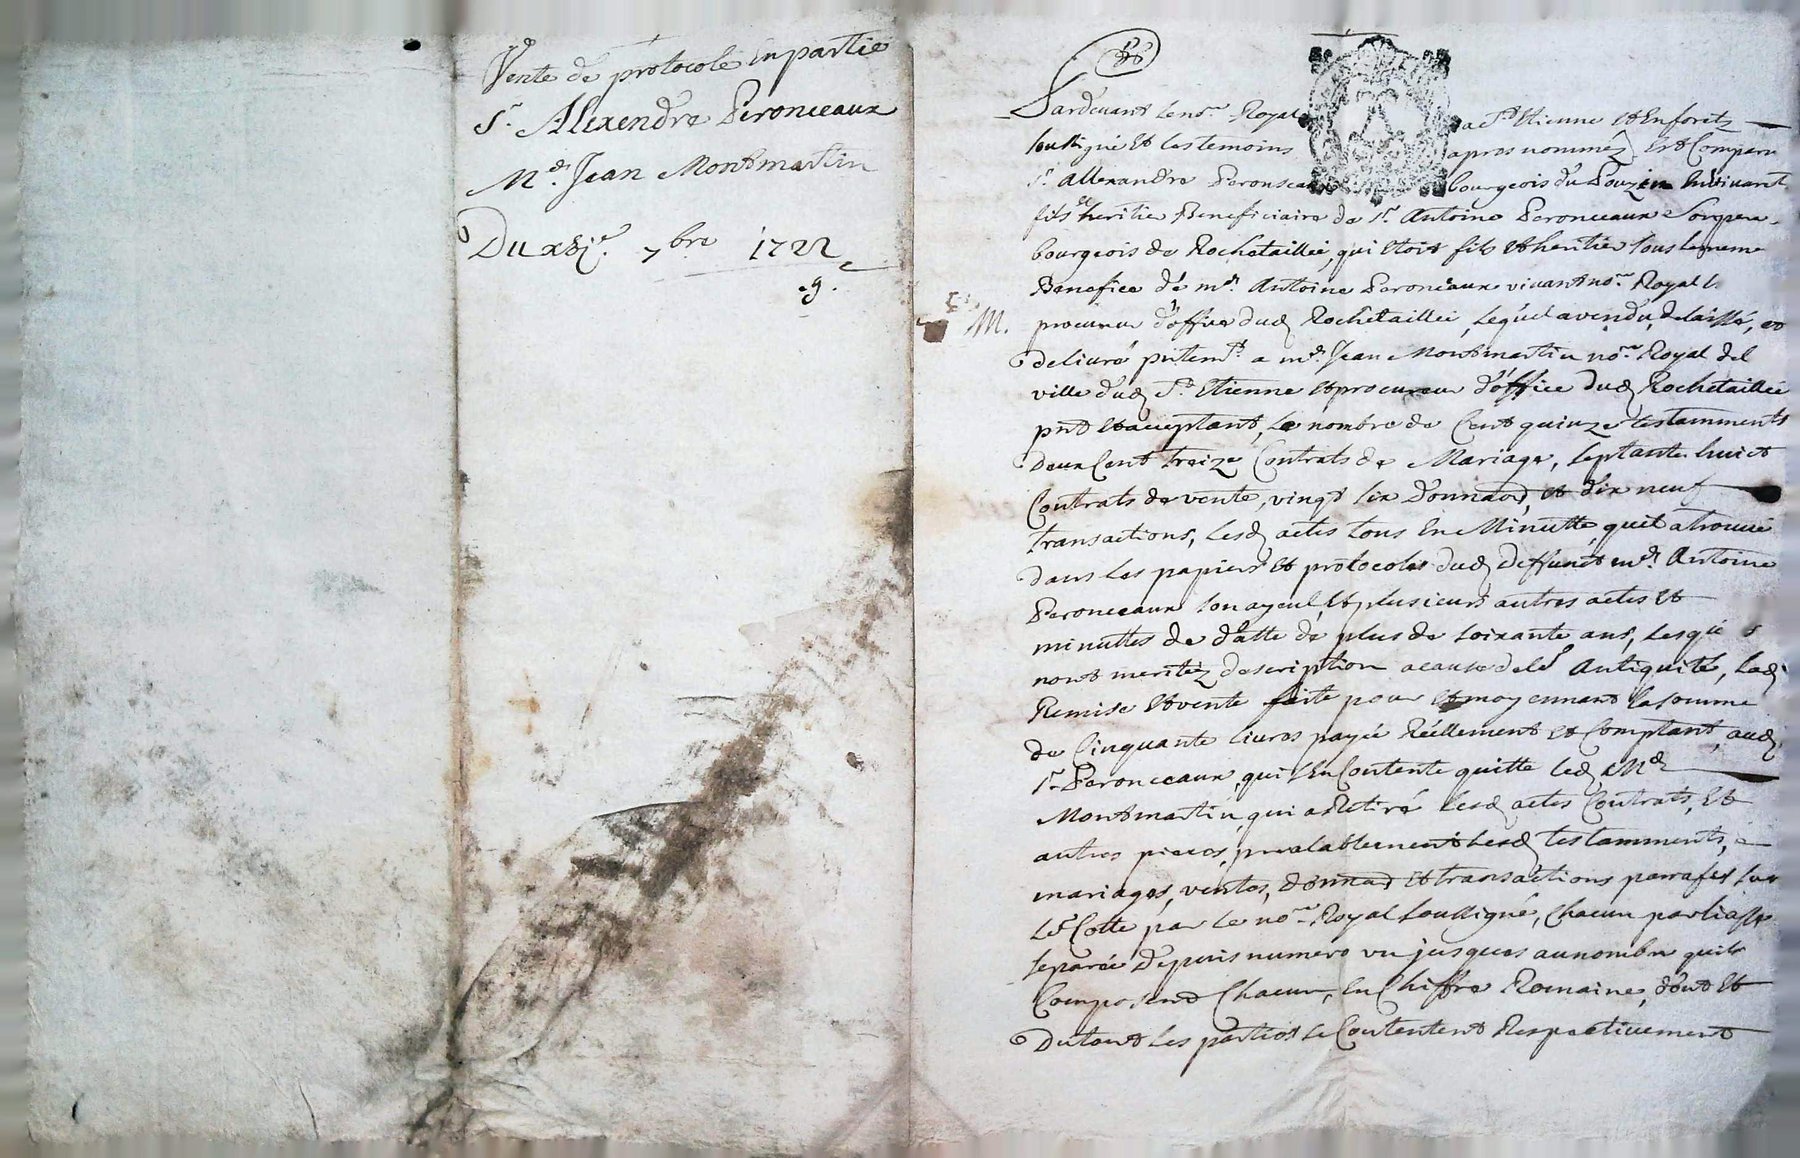 Vente de protocole en partie
Sr. Alexendre Peronceaux
Me. Jean Montmartin
Du 7bre 1722
.9.
Pardevant le nore. Royal a St. Etienne et Enforitz
soussigné et les temoins apres nommés Est Comparu
Sr. Allexandre bourgeois du Pouzin
fils et heritie Beneficiaire de Sr. Antoine Peronceaux
bourgeois de Rochetaillée, qui etoit fils et heritier sous le meme
Benefice de me. Antoine Peronceaux vivant nore. Royal &
M. procureur d'office dud Rochetaillée, Lequel a vendu, delaissé, et
delivré pntemt. a me. Jean Montmartin nore. Royal del
ville dud St. Etienne et procureur d'office dud Rochetaillée
pnt et acceptant, Le nombre de Cent quinze testamments
deux Cent treize Contrats de Mariage, septante huict
Contrats de vente, vingt six donnaon, et dix neuf
transactions, Lesd actes tous En Minutte, quil a trouvé
dans Les papiers et protocoles dud deffunct me. Antoine
Peronceaux son ayeul, et plusieurs autres actes et
minuttes de datte de plus de soixante ans,
nont meritéz description a cause de Antiquité, Lad
Remise et vente faite pour et moyennant La somme
de Cinquante Livres payée Réellement et Comptant, aud
Sr. Peronceaux, qui sen Contente quitte Led Me
Montmartin, qui a Retiré Lesd actes Contrats, Et
autres pieces, prealablement Lesd testamments,
mariages, ventes, donnaon et transactions parrafés sur
Le Cotte par Le nore. Royal soussigné, Chacun par
separée depuis numero un jusques au nombre quils
Composent Chacun, En Chiffre Romaine, dont Et
Du tout Les parties se Contentent Respectivement